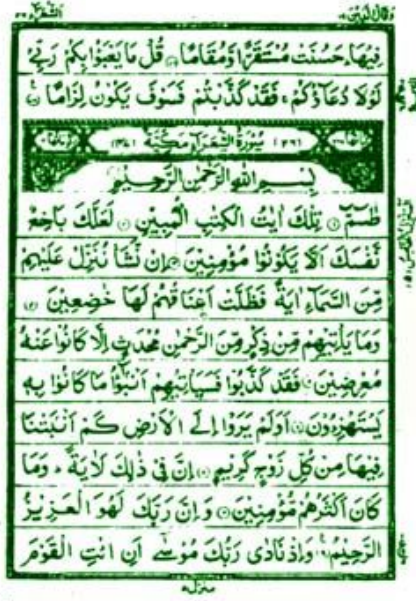 وقال الذين ١٩
الشعرآء ٢٦
فِيْهَا ؕ حَسُنَتْ مُسْتَقَرًّا وَّمُقَامًا ۝ قُلْ مَا يَعْبَؤُا بِكُمْ رَبِّىْ
لَوْلَا دُعَآؤُكُمْ ۚ فَقَدْ كَذَّبْتُمْ فَسَوْفَ يَكُوْنُ لِزَامًا ۝
سُوْرَةُ الشُّعَرَآءِ مَكِّيَّةٌ
بِسْمِ اللّٰهِ الرَّحْمٰنِ الرَّحِيْمِ
طٰسٓمّٓ ۝ تِلْكَ اٰيٰتُ الْكِتٰبِ الْمُبِيْنِ ۝ لَعَلَّكَ بَاخِعٌ
نَّفْسَكَ اَلَّا يَكُوْنُوْا مُؤْمِنِيْنَ ۝ اِنْ نَّشَاْ نُنَزِّلْ عَلَيْهِمْ
مِّنَ السَّمَآءِ اٰيَةً فَظَلَّتْ اَعْنَاقُهُمْ لَهَا خٰضِعِيْنَ ۝
وَمَا يَاْتِيْهِمْ مِّنْ ذِكْرٍ مِّنَ الرَّحْمٰنِ مُحْدَثٍ اِلَّا كَانُوْا عَنْهُ
مُعْرِضِيْنَ ۝ فَقَدْ كَذَّبُوْا فَسَيَاْتِيْهِمْ اَنْۢبٰٓؤُا مَا كَانُوْا بِهٖ
يَسْتَهْزِءُوْنَ ۝ اَوَلَمْ يَرَوْا اِلَى الْاَرْضِ كَمْ اَنْۢبَتْنَا
فِيْهَا مِنْ كُلِّ زَوْجٍ كَرِيْمٍ ۝ اِنَّ فِىْ ذٰلِكَ لَاٰيَةً ؕ وَمَا
كَانَ اَكْثَرُهُمْ مُّؤْمِنِيْنَ ۝ وَاِنَّ رَبَّكَ لَهُوَ الْعَزِيْزُ
الرَّحِيْمُ ۝ وَاِذْ نَادٰى رَبُّكَ مُوْسٰٓى اَنِ ائْتِ الْقَوْمَ
منزل ٥